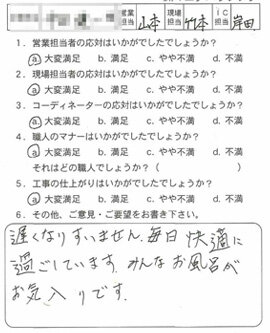 営業担当 山本 現場担当 竹本 IC担当 岸田
1．営業担当者の応対はいかがでしたでしょうか？
a. 大変満足 b. 満足 c. やや不満 d. 不満
2．現場担当者の応対はいかがでしたでしょうか？
a. 大変満足 b. 満足 c. やや不満 d. 不満
3．コーディネーターの応対はいかがでしたでしょうか？
a. 大変満足 b. 満足 c. やや不満 d. 不満
4．職人のマナーはいかがでしたでしょうか？
a. 大変満足 b. 満足 c. やや不満 d. 不満
それはどの職人でしょうか？（ ）
5．工事の仕上がりはいかがでしたでしょうか？
a. 大変満足 b. 満足 c. やや不満 d. 不満
6．その他、ご意見・ご要望をお書き下さい。
遅くなりすいません。毎日快適に
過ごしています。みんなお風呂が
お気入りです。